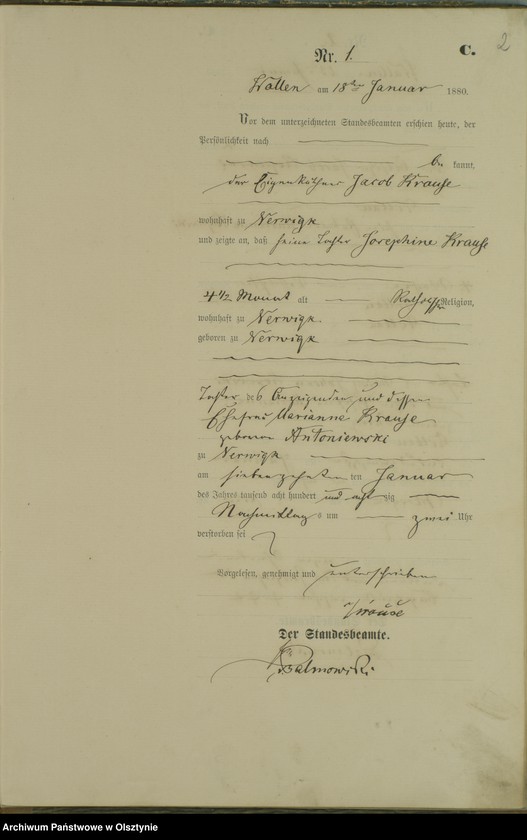 C.
2
Nr. 1.
Wallen am 18ten Januar 1880.
Vor dem unterzeichneten Standesbeamten erschien heute, der
Persönlichkeit nach
be kannt,
der Eigenkäthner Jacob Krause
wohnhaft zu Nerwigk
und zeigte an, daß seine Tochter Josephine Krause
4 1/2 Monat alt Religion,
wohnhaft zu Nerwigk
geboren zu Nerwigk
Tochter des Anzeigenden und dessen
Ehefrau Marianne Krause
geborene Antoniewski
zu Nerwigk
am siebenzehnten ten Januar
des Jahres tausend acht hundert und achtzig
Nachmittags um zwei Uhr
verstorben sei
Vorgelesen, genehmigt und unterschrieben
Krause
Der Standesbeamte.
Archiwum Państwowe w Olsztynie